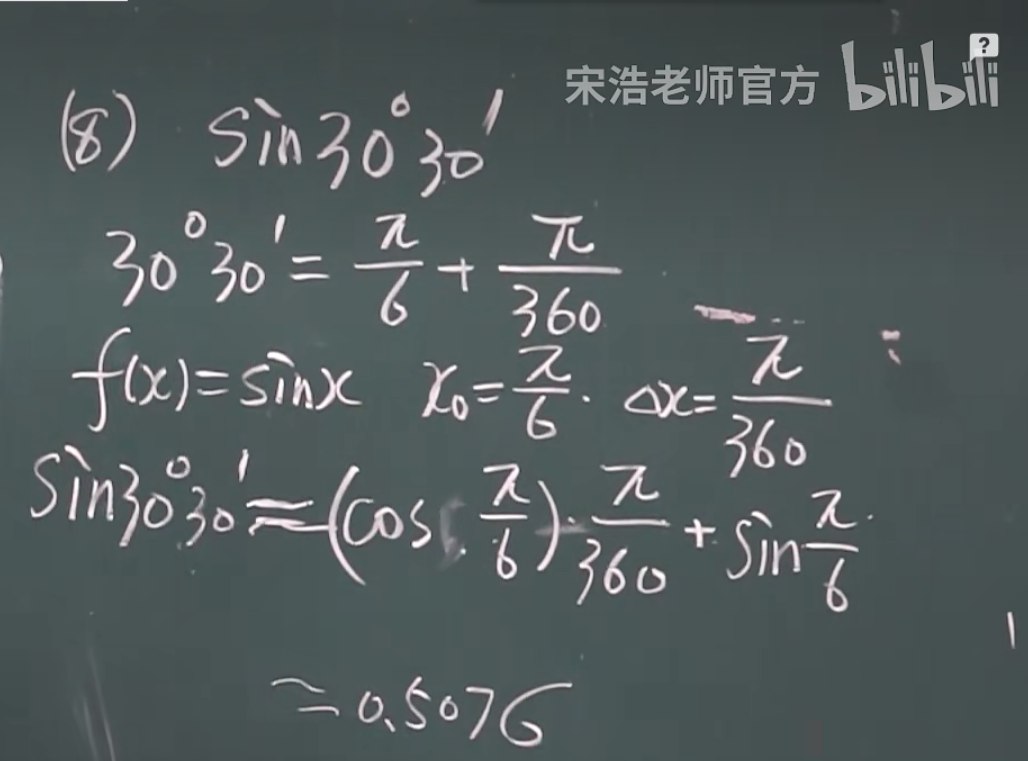 宋浩老师官方 bilibili ?
(8) sin30°30′
30°30′ = π/6 + π/360
f(x)=sinx x₀=π/6. Δx=π/360
sin30°30′ ≈ (cos π/6)·π/360 + sin π/6
≈ 0.5076